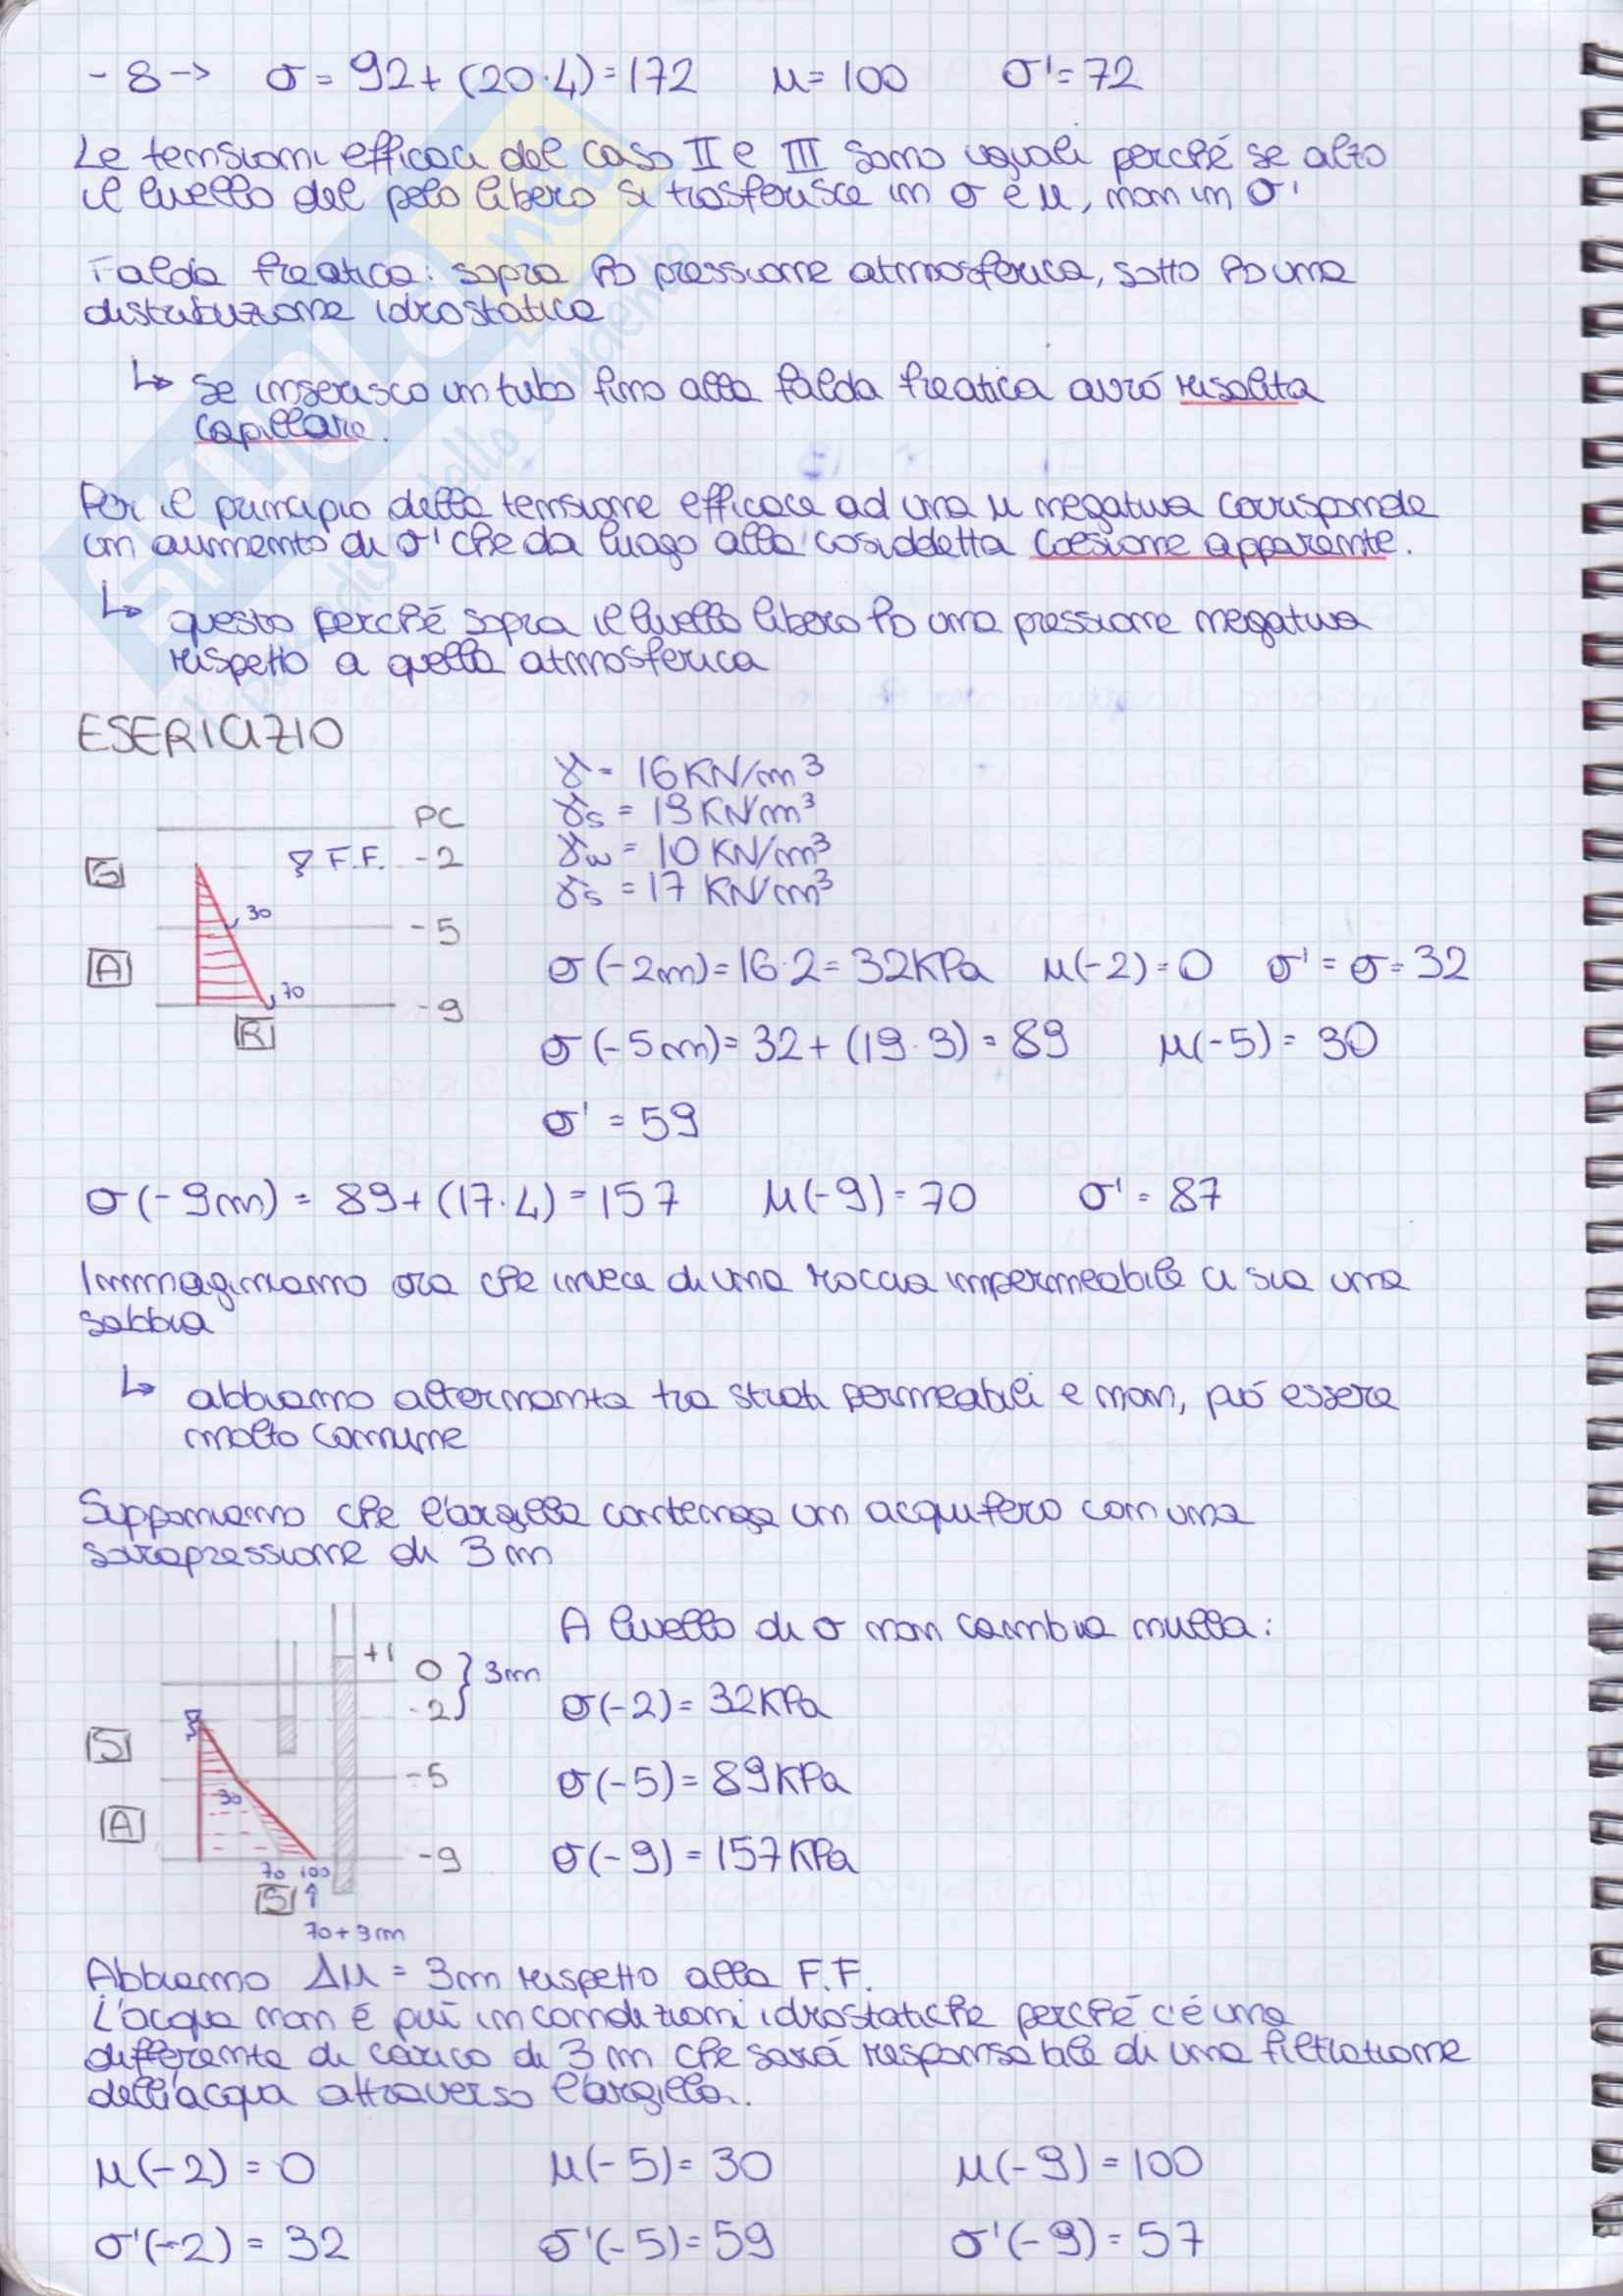 -8 → σ = 92 + (20·4) = 172 μ = 100 σ' = 72
Le tensioni efficaci del caso II e III sono uguali perché se alzo
il livello del pelo libero si trasferisce in σ e μ, non in σ'
Falda freatica: sopra ho pressione atmosferica, sotto ho una
distribuzione idrostatica
↳ se inserisco un tubo fino alla falda freatica avrò risalita
capillare.
Per il principio della tensione efficace ad una μ negativa corrisponde
un aumento di σ' che da luogo alla cosiddetta coesione apparente.
↳ questo perché sopra il livello libero ho una pressione negativa
rispetto a quella atmosferica
ESERCIZIO
γ = 16 KN/m³
PC γs = 19 KN/m³
S F.F. -2 γw = 10 KN/m³
γs = 17 KN/m³
30 -5
A σ(-2m) = 16·2 = 32KPa μ(-2) = 0 σ' = σ = 32
70 -9
R σ(-5m) = 32 + (19·3) = 89 μ(-5) = 30
σ' = 59
σ(-9m) = 89 + (17·4) = 157 μ(-9) = 70 σ' = 87
Immaginiamo ora che invece di una roccia impermeabile ci sia una
sabbia
↳ abbiamo alternanza tra strati permeabili e non, può essere
molto comune
Supponiamo che l'argilla contenga un acquifero con una
sovrapressione di 3 m
A livello di σ non cambia nulla:
+1 0 } 3m
-2 σ(-2) = 32KPa
S
-5 σ(-5) = 89KPa
30
A
-9 σ(-9) = 157KPa
70 100
S ↑
70+3m
Abbiamo Δμ = 3m rispetto alla F.F.
L'acqua non è più in condizioni idrostatiche perché c'é una
differenza di carico di 3 m che sarà responsabile di una filtrazione
dell'acqua attraverso l'argilla.
μ(-2) = 0 μ(-5) = 30 μ(-9) = 100
σ'(-2) = 32 σ'(-5) = 59 σ'(-9) = 57